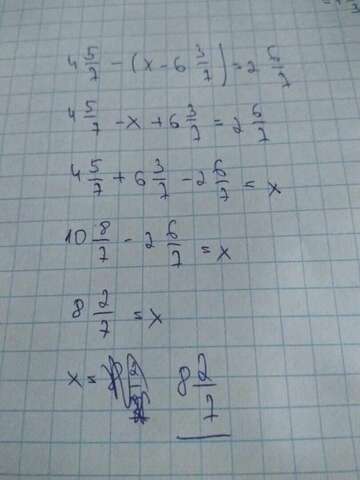 4 5/7 - (x - 6 3/7) = 2 6/7
4 5/7 - x + 6 3/7 = 2 6/7
4 5/7 + 6 3/7 - 2 6/7 = x
10 8/7 - 2 6/7 = x
8 2/7 = x
x = 8 2/7